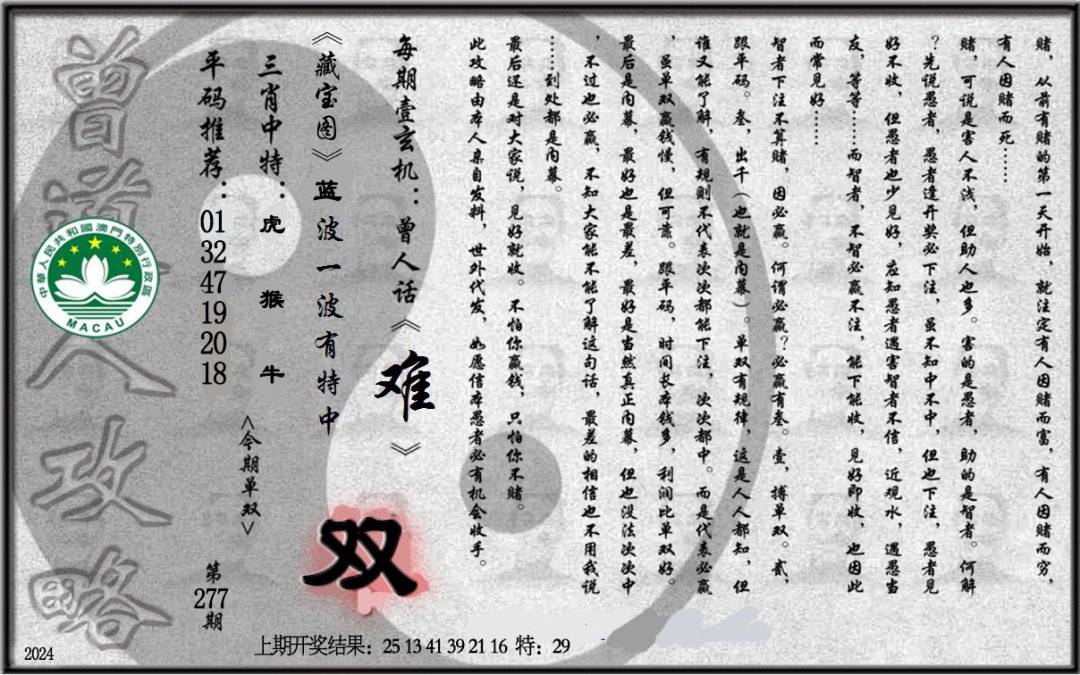 赌，从前有赌的第一天开始，就注定有人因赌而富，有人因赌而穷，
有人因赌而死……
赌，可说是害人不浅，但助人也多。害的是愚者，助的是智者。何解
？先说愚者，愚者逢开奖必下注，虽不知中不中，但也下注，愚者见
好不收，但愚者也少见好，应知愚者遇害智者不信，近观水，遇愚当
友，等等……而智者，不智必赢不注，能下能收，见好即收，也因此
而常见好……
智者下注不算赌，因必赢。何谓必赢？必赢有叁。壹，搏单双。贰，
跟平码。叁，出千（也就是内幕）。单双有规律，这是人人都知，但
谁又能了解，有规则不代表次次都能下注，次次都中。而是代表必赢
，虽单双赢钱慢，但可靠。跟平码，时间长本钱多，利润比单双好。
最后是内幕，最好也是最差，最好是当然真正内幕，但也没法次次中
，不过也必赢，不知大家能不能了解这句话，最差的相信也不用我说
……到处都是内幕。
最后还是对大家说，见好就收。不怕你赢钱，只怕你不赌。
此攻略由本人亲自发料，世外代发，如愿信本愚者必有机会收手。
每期壹玄机：曾人话《难》
《藏宝图》蓝波一波有特中
双
三肖中特：虎 猴 牛
<今期单双>
平码推荐：01 32 47 19 20 18
第277期
曾道人攻略
中華人民共和國澳門特別行政區
MACAU
上期开奖结果：25 13 41 39 21 16 特：29
2024